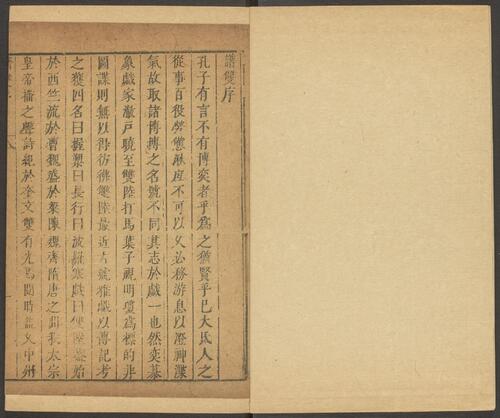 譜雙序
孔子有言不有博奕者乎爲之猶賢乎已大氐人之
從事百役勞憊厭度不可以久必務游息以澄神渫
氣故取諸博搏之名號不同其志於戲一也然奕棊
象戲家澈戶曉至雙陸打馬葉子視明瓊爲標的非
圖諜則無以得彷彿雙陸最近古號雅戲以傳記考
之獲四名曰握槊曰長行曰波羅塞戲曰雙陸蓋始
於西竺流於曹魏盛於梁陳魏齊隋唐之間我太宗
皇帝播之聲詩紀於奎文雙有光焉閱時旣久中州